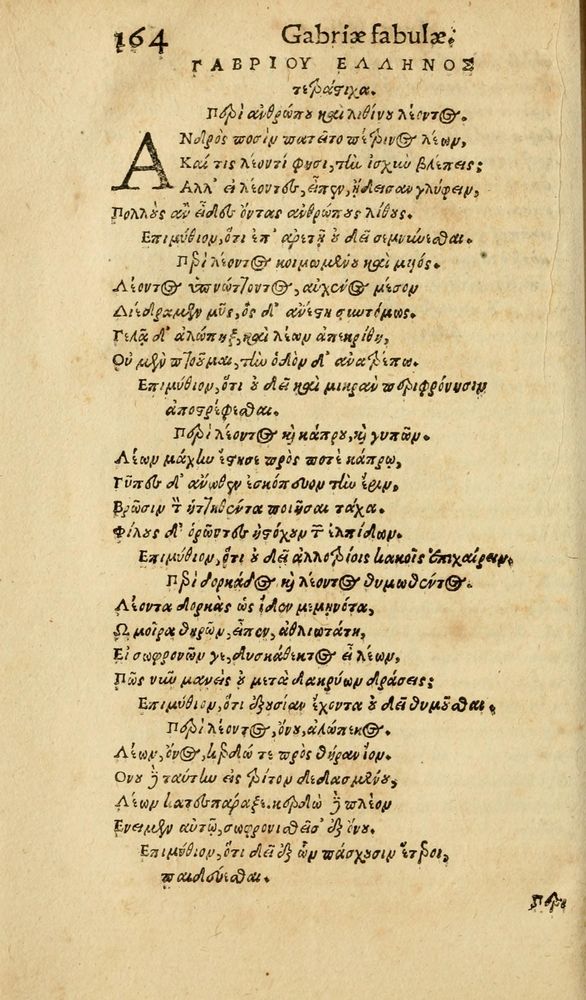 164 Gabriæ fabulæ.
ΓΑΒΡΙΟΥ ΕΛΛΗΝΟΣ
τετράστιχα.
Περὶ ἀνθρώπου καὶ λιθίνου λέοντος.
Ανδρὸς ποσὶν πατεῖτο πέτρινος λέων,
Καί τις λέοντί φησι, τὴν ἰσχὺν βλέπεις;
Αλλ' εἰ λέοντες, εἶπεν, ᾔδεισαν γλύφειν,
Πολλοὺς ἂν εἶδες ὄντας ἀνθρώπους λίθους.
Επιμύθιον, ὅτι ἐπ' ἀρετῇ οὐ δεῖ σεμνύνεσθαι.
Περὶ λέοντος κοιμωμένου καὶ μυός.
Λέοντος ὑπνώττοντος, αὐχένος μέσον
Διέδραμεν μῦς, ὃς δ' ἀνέστη συντόμως.
Γελᾷ δ' ἀλώπηξ, καὶ λέων ἀπεκρίθη,
Οὐ μῦν πτοοῦμαι, τὴν ὁδὸν δ' ἀνατρέπω.
Επιμύθιον, ὅτι οὐ δεῖ καὶ μικρὰν περιφρόνησιν
ἀποστρέφεσθαι.
Περὶ λέοντος καὶ κάπρου, καὶ γυπῶν.
Λέων μάχην ἔστησε πρὸς ποτὲ κάπρῳ,
Γῦπες δ' ἄνωθεν ἐσκόπευον τὴν ἔριν,
Βρῶσιν τὸν ἡττηθέντα ποιῆσαι τάχα.
Φίλους δ' ὁρῶντες ἠστόχουν τῶν ἐλπίδων.
Επιμύθιον, ὅτι οὐ δεῖ ἀλλοτρίοις κακοῖς ἐπιχαίρειν.
Περὶ δορκάδος καὶ λέοντος θυμωθέντος.
Λέοντα δορκὰς ὡς ἴδεν μεμηνότα,
Ω μοῖρα θηρῶν, εἶπεν, ἀθλιωτάτη,
Εἰ σωφρονῶν γε, δυσκάθεκτος εἶ λέων,
Πῶς νῦν μανεὶς οὐ μετὰ δακρύων δράσεις;
Επιμύθιον, ὅτι ἐξουσίαν ἔχοντα οὐ δεῖ θυμοῦσθαι.
Περὶ λέοντος, ὄνου, ἀλώπεκος.
Λέων, ὄνος, κερδώ τε πρὸς θήραν ἴον.
Ονου δὲ ταύτην εἰς τρίτον δεδασμένου,
Λέων κατεσπάραξε. κερδὼ δὲ πλέον
Ενειμεν αὐτῷ, σωφρονισθεῖσ' ἐξ ὄνου.
Επιμύθιον, ὅτι δεῖ ἐξ ὧν πάσχουσιν ἕτεροι,
παιδεύεσθαι.
Περὶ